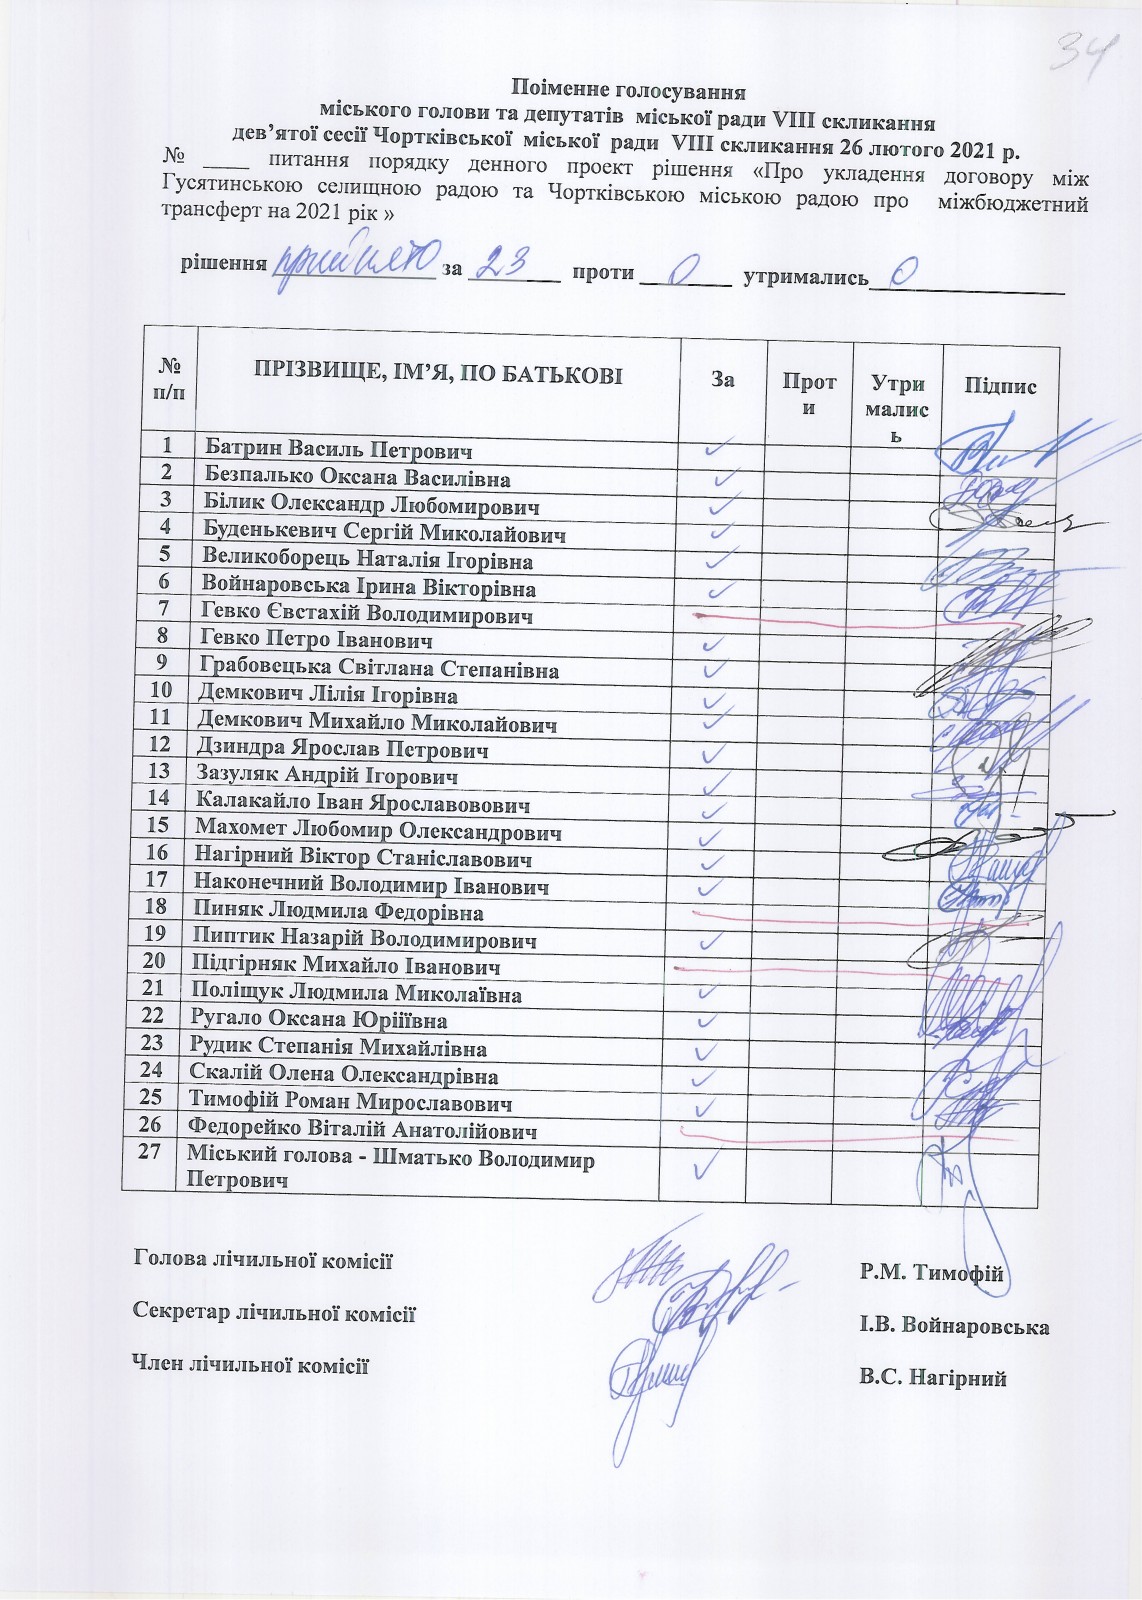 34
Поіменне голосування
міського голови та депутатів міської ради VIII скликання
дев’ятої сесії Чортківської міської ради VIII скликання 26 лютого 2021 р.
№ ____ питання порядку денного проект рішення «Про укладення договору між
Гусятинською селищною радою та Чортківською міською радою про міжбюджетний
трансферт на 2021 рік »
рішення прийнято за 23 проти 0 утримались 0
№ п/п ПРІЗВИЩЕ, ІМ’Я, ПО БАТЬКОВІ За Проти Утримались Підпис
1 Батрин Василь Петрович ✓
2 Безпалько Оксана Василівна ✓
3 Білик Олександр Любомирович ✓
4 Буденькевич Сергій Миколайович ✓
5 Великоборець Наталія Ігорівна ✓
6 Войнаровська Ірина Вікторівна ✓
7 Гевко Євстахій Володимирович
8 Гевко Петро Іванович ✓
9 Грабовецька Світлана Степанівна ✓
10 Демкович Лілія Ігорівна ✓
11 Демкович Михайло Миколайович ✓
12 Дзиндра Ярослав Петрович ✓
13 Зазуляк Андрій Ігорович ✓
14 Калакайло Іван Ярославовович ✓
15 Махомет Любомир Олександрович ✓
16 Нагірний Віктор Станіславович ✓
17 Наконечний Володимир Іванович ✓
18 Пиняк Людмила Федорівна
19 Пиптик Назарій Володимирович ✓
20 Підгірняк Михайло Іванович
21 Поліщук Людмила Миколаївна ✓
22 Ругало Оксана Юріїівна ✓
23 Рудик Степанія Михайлівна ✓
24 Скалій Олена Олександрівна ✓
25 Тимофій Роман Мирославович ✓
26 Федорейко Віталій Анатолійович
27 Міський голова - Шматько Володимир
Петрович ✓
Голова лічильної комісії Р.М. Тимофій
Секретар лічильної комісії І.В. Войнаровська
Член лічильної комісії В.С. Нагірний